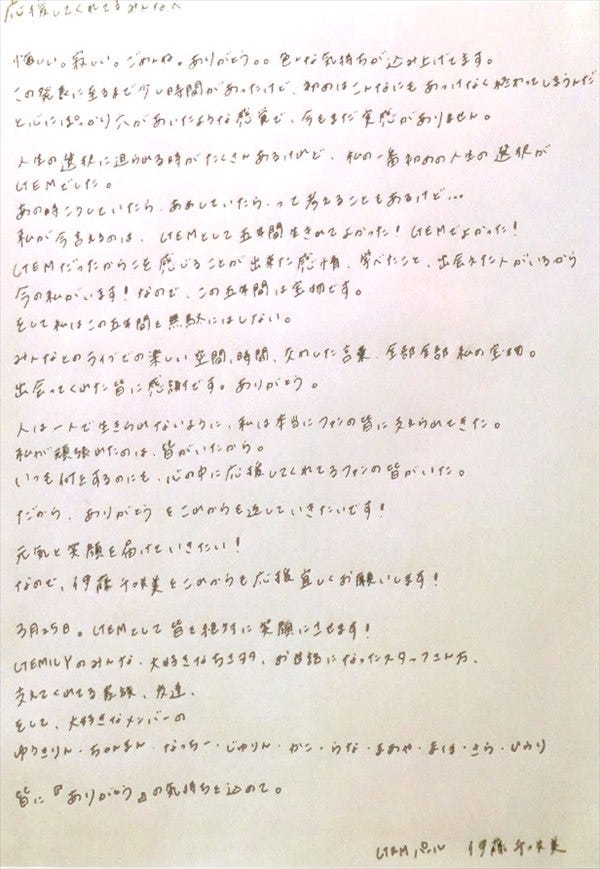 応援してくれてるみんなへ
悔しい。寂しい。ごめんね。ありがとう。。色々な気持ちが込み上げてます。
この発表に至るまで少し時間があったけど、初めはこんなにもあっけなく終わってしまうんだ
と心にぽっかり穴があいたような感覚で、今もまだ実感がありません。
人生の選択に迫られる時がたくさんあるけど、私の一番初めの人生の選択が
でした。
あの時こうしていたら、ああしていたら、って考えることもあるけど…
私が今言えるのは、 として五年間生きれてよかった! でよかった!
だったからこそ感じることが出来た感情、学べたこと、出会えた人がいるから
今の私がいます!なので、この五年間は宝物です。
そして私はこの五年間を無駄にはしない。
みんなとのライブでの楽しい空間、時間、交わした言葉、全部全部私の宝物。
出会ってくれた皆に感謝です。ありがとう。
人は一人で生きられないように、私は本当にファンの皆に支えられてきた。
私が頑張れたのは、皆がいたから。
いつも何をするのにも、心の中に応援してくれてるファンの皆がいた。
だから、ありがとうをこれからも返していきたいです!
元気と笑顔を届けていきたい!
なので、伊藤千咲美をこれからも応援宜しくお願いします!
3月25日。 として皆を絶対に笑顔にさせます!
のみんな、大好きなちさラブ、お世話になったスタッフさん方、
支えてくれてる家族、友達、
そして、大好きなメンバーの
ゆうきりん・ちゅんまん・なっちー・じゅりん・かこ・らな・まあや・まほ・きら・ひめり
皆に『ありがとう』の気持ちを込めて。
パール 伊藤千咲美